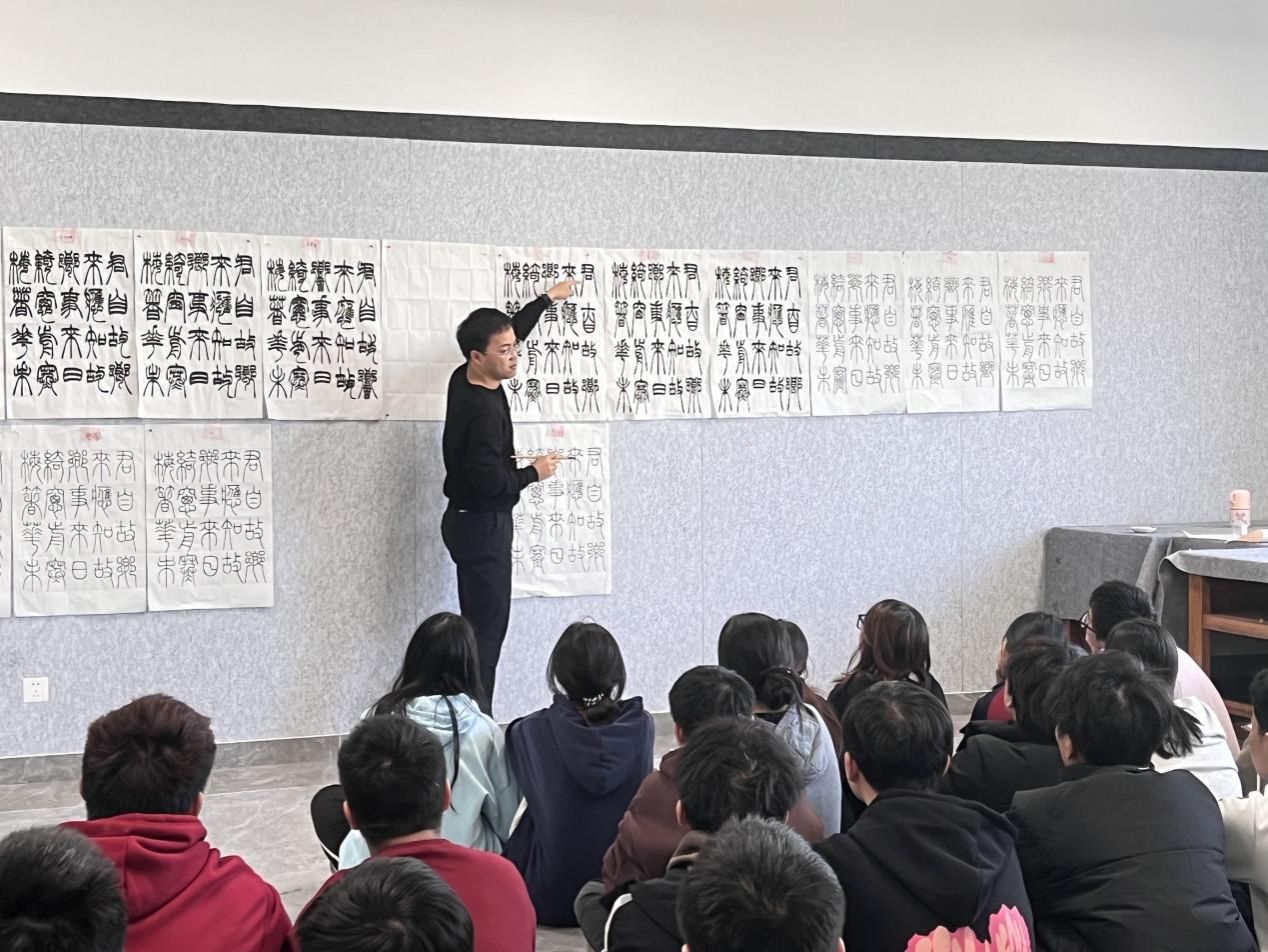 君自故鄉
來應知故
鄉事來日
綺窗前寒
梅著華未
君自故鄉
來應知故
鄉事來日
綺窗前寒
梅著華未
君自故鄉
來應知故
鄉事來日
綺窗前寒
梅著華未
君自故鄉
來應知故
鄉事來日
綺窗前寒
梅著華未
君自故鄉
來應知故
鄉事來日
綺窗前寒
梅著華未
君自故鄉
來應知故
鄉事來日
綺窗前寒
梅著華未
君自故鄉
來應知故
鄉事來日
綺窗前寒
梅著華未
君自故鄉
來應知故
鄉事來日
綺窗前寒
梅著華未
君自故鄉
來應知故
鄉事來日
綺窗前寒
梅著華未
君自故鄉
來應知故
鄉事來日
綺窗前寒
梅著華未
君自故鄉
來應知故
鄉事來日
綺窗前寒
梅著華未
君自故鄉
來應知故
鄉事來日
綺窗前寒
梅著華未